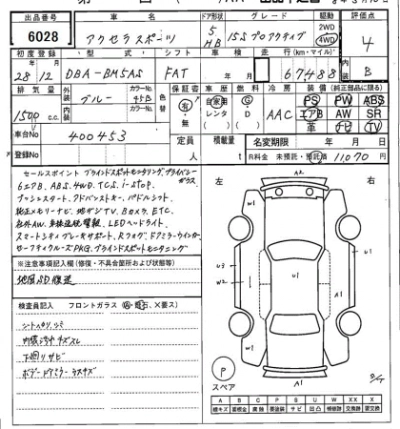 出品番号 車名 ドア形状 グレード 駆動 評価点
6028 アクセラスポーツ 5 HB 15Sプロアクティブ 2WD 4WD 4
初度登録 型式 シフト 車検 走行(km・マイル) 内装
28 12 DBA-BM5AS FAT 年 月 67488 B
排気量 外装 カラーNo. 色替 保証書 車歴 燃料 冷房 装備(純正部品に限る)
1500 c.c. ブルー 45B 有・無 自家用 レンタ G D AAC PS PW ABS
エアB AW SR
革 ナビ TV
車台No. 400453 定員 人 積載量 名変期限 年 月 日
登録No. R料金 未預託・預託済 11070 円
セールスポイント ブラインドスポットモニタリング、プライバシーガラス
6エアB、ABS、4WD、TCS、i-stop、
プッシュスタート、アドバンストキー、パドルシフト、
純正メモリーナビ、地デジTV、Bカメラ、ETC、
社外AW、車線逸脱警報、LEDヘッドライト、
スマートシティブレーキサポート、Rフォグ、ドアミラーウインカー、
セーフティクルーズPKG、ブラインドスポットモニタリング
※注意事項記入欄(修復・不具合箇所および状態等)
地図SD後送
検査員記入 フロントガラス
シートヘリ、シミ
内張汚キズスレ
下廻リサビ
ボデードアミラーラスキズ
左 右
U1
U1
U3
W2
A1
A1
P
スペア
A B C P S U W X XX